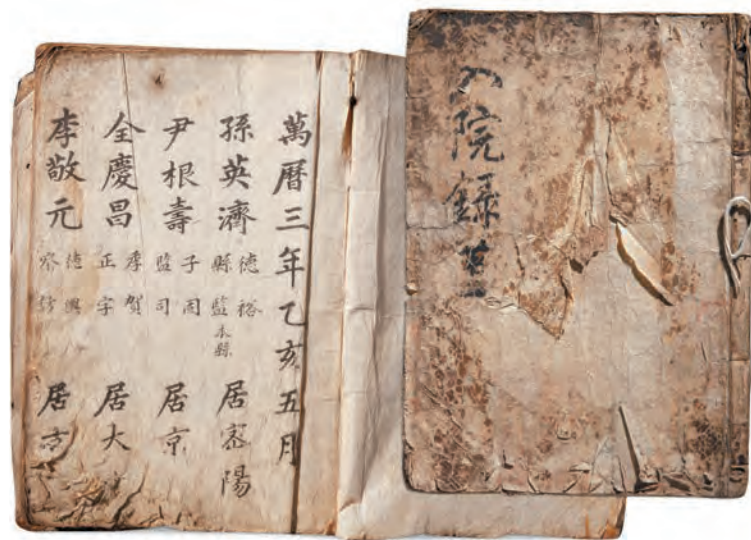 入院錄
萬曆三年乙亥五月
孫英濟 德裕 縣監本縣 居密陽
尹根壽 子固 監司 居京
全慶昌 季賀 正字 居大
李敬元 德興 察訪 居